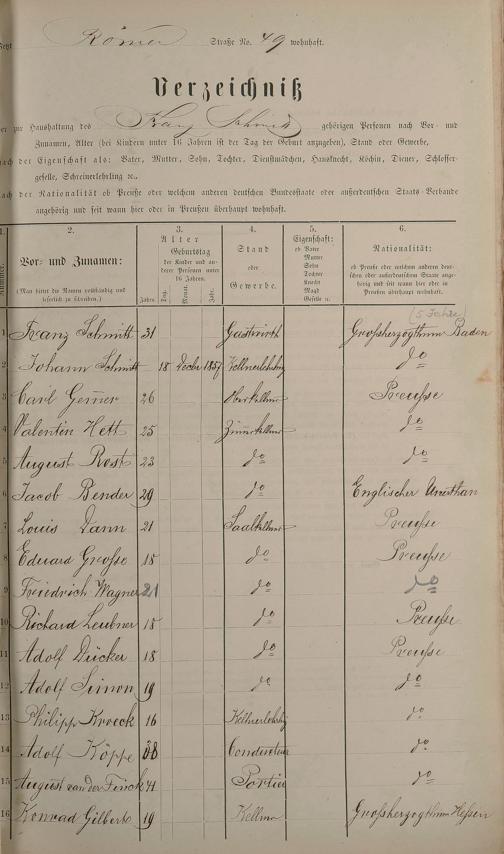 Römer Straße No. 49 wohnhaft.
Verzeichniß
zur Haushaltung des Franz Schmitt gehörigen Personen nach Vor- und
Zunamen, Alter (bei Kindern unter 16 Jahren ist der Tag der Geburt anzugeben), Stand oder Gewerbe,
nach der Eigenschaft als: Vater, Mutter, Sohn, Tochter, Dienstmädchen, Hausknecht, Köchin, Diener, Schlosser-
geselle, Schreinerlehrling ꝛc.,
nach der Nationalität ob Preuße oder welchem anderen deutschen Bundesstaate oder außerdeutschen Staats-Verbande
angehörig und seit wann hier oder in Preußen überhaupt wohnhaft.
1. 2. 3. 4. 5. 6.
Nummer.
Vor- und Zunamen:
(Man bittet die Namen vollständig und leserlich zu schreiben.)
Alter
Jahre.
Geburtstag
der Kinder und anderer Personen unter 16 Jahren.
Tag. Monat. Jahr.
Stand
oder
Gewerbe.
Eigenschaft:
ob Vater
Mutter
Sohn
Tochter
Knecht
Magd
Geselle u.
Nationalität:
ob Preuße oder welchem anderen deutschen oder außerdeutschen Staate angehörig und seit wann hier oder in Preußen überhaupt wohnhaft.
(5 Jahre)
1 Franz Schmitt 31 Gastwirth Großherzogthum Baden
2 Johann Schmitt 18 Decbr 1857 Kellnerlehrling do
3 Carl Gerner 26 Oberkellner Preuße
4 Valentin Hett 25 Zimmerkellner do
5 August Rost 23 do do
6 Jacob Bender 29 do Englischer
7 Louis Dann 21 Saalkellner Preuße
8 Eduard Große 18 do Preuße
9 Friedrich Wagner 21 do do
10 Richard Leubner 18 do Preuße
11 Adolf Dücker 18 do Preuße
12 Adolf Simon 19 do do
13 Philipp Kroeck 16 Kellnerlehrling do
14 Adolf Köppe 38 Conducteur do
15 August van der Finck 41 Portier do
16 Konrad Gilbert 19 Kellner Großherzogthum Hessen